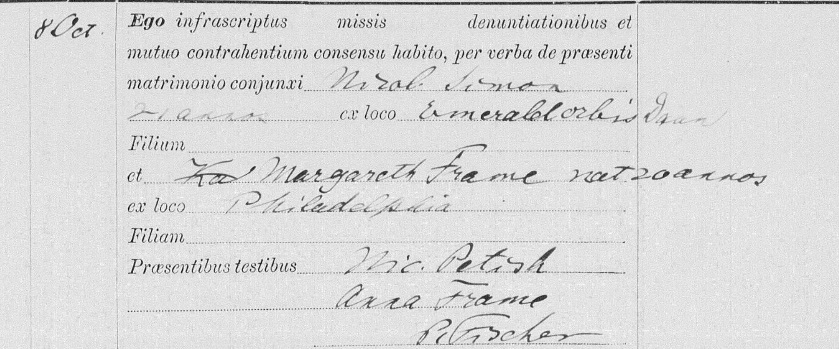 8 Oct. Ego infrascriptus missis denuntiationibus et
mutuo contrahentium consensu habito, per verba de præsenti
matrimonio conjunxi Nicol. Simon
21 annos ex loco Emerald orbis
Filium
et Margareth Frame nat 20 annos
ex loco Philadelphia
Filiam
Præsentibus testibus Nic. Petish
Anna Frame
P. Fischer